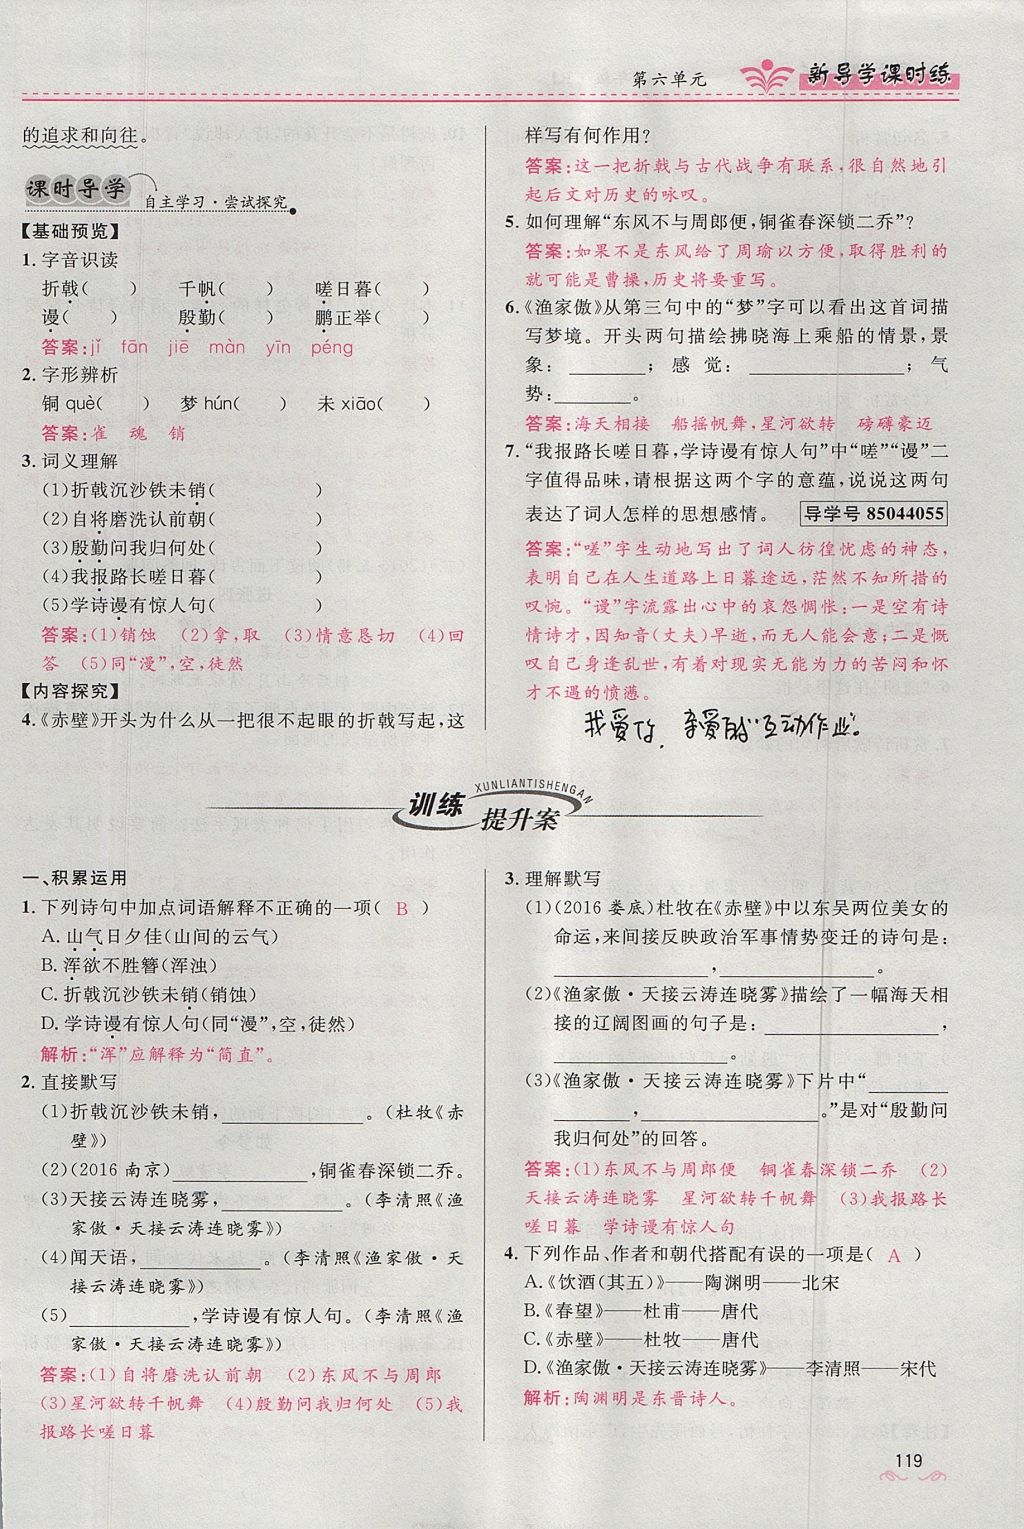 第六单元
新导学课时练
的追求和向往。
课时导学 自主学习·尝试探究
【基础预览】
1. 字音识读
折戟(　　) 千帆(　　) 嗟日暮(　　)
谩(　　) 殷勤(　　) 鹏正举(　　)
答案:jǐ fān jiē màn yīn péng
2. 字形辨析
铜 què(　　) 梦 hún(　　) 未 xiāo(　　)
答案:雀 魂 销
3. 词义理解
(1)折戟沉沙铁未销(　　　　)
(2)自将磨洗认前朝(　　　　)
(3)殷勤问我归何处(　　　　)
(4)我报路长嗟日暮(　　　　)
(5)学诗谩有惊人句(　　　　)
答案:(1)销蚀 (2)拿,取 (3)情意恳切 (4)回
答 (5)同“漫”,空,徒然
【内容探究】
4.《赤壁》开头为什么从一把很不起眼的折戟写起,这
样写有何作用?
答案:这一把折戟与古代战争有联系,很自然地引
起后文对历史的咏叹。
5. 如何理解“东风不与周郎便,铜雀春深锁二乔”?
答案:如果不是东风给了周瑜以方便,取得胜利的
就可能是曹操,历史将要重写。
6.《渔家傲》从第三句中的“梦”字可以看出这首词描
写梦境。开头两句描绘拂晓海上乘船的情景,景
象:________;感觉:________________;气
势:________。
答案:海天相接 船摇帆舞,星河欲转 磅礴豪迈
7. “我报路长嗟日暮,学诗谩有惊人句”中“嗟”“谩”二
字值得品味,请根据这两个字的意蕴,说说这两句
表达了词人怎样的思想感情。 导学号 85044055
答案:“嗟”字生动地写出了词人彷徨忧虑的神态,
表明自己在人生道路上日暮途远,茫然不知所措的
叹惋。“谩”字流露出心中的哀怨惆怅:一是空有诗
情诗才,因知音(丈夫)早逝,而无人能会意;二是慨
叹自己身逢乱世,有着对现实无能为力的苦闷和怀
才不遇的愤懑。
我爱你,亲爱的“互动作业”。
XUNLIANTISHENGAN
训练
提升案
一、积累运用
1. 下列诗句中加点词语解释不正确的一项( B )
A. 山气日夕佳(山间的云气)
B. 浑欲不胜簪(浑浊)
C. 折戟沉沙铁未销(销蚀)
D. 学诗谩有惊人句(同“漫”,空,徒然)
解析:“浑”应解释为“简直”。
2. 直接默写
(1)折戟沉沙铁未销,______________。(杜牧《赤
壁》)
(2)(2016南京)______________,铜雀春深锁二乔。
(3)天接云涛连晓雾,____________。(李清照《渔
家傲·天接云涛连晓雾》)
(4)闻天语,____________。(李清照《渔家傲·天
接云涛连晓雾》)
(5)____________,学诗谩有惊人句。(李清照《渔
家傲·天接云涛连晓雾》)
答案:(1)自将磨洗认前朝 (2)东风不与周郎
(3)星河欲转千帆舞 (4)殷勤问我归何处 (5)我
报路长嗟日暮
3. 理解默写
(1)(2016娄底)杜牧在《赤壁》中以东吴两位美女的
命运,来间接反映政治军事情势变迁的诗句是:
________________,________________。
(2)《渔家傲·天接云涛连晓雾》描绘了一幅海天相
接的辽阔图画的句子是:__________________,
__________________。
(3)《渔家傲·天接云涛连晓雾》下片中“________
________,__________________。”是对“殷勤问
我归何处”的回答。
答案:(1)东风不与周郎便 铜雀春深锁二乔 (2)
天接云涛连晓雾 星河欲转千帆舞 (3)我报路长
嗟日暮 学诗谩有惊人句
4. 下列作品、作者和朝代搭配有误的一项是( A )
A.《饮酒(其五)》——陶渊明——北宋
B.《春望》——杜甫——唐代
C.《赤壁》——杜牧——唐代
D.《渔家傲·天接云涛连晓雾》——李清照——宋代
解析:陶渊明是东晋诗人。
119